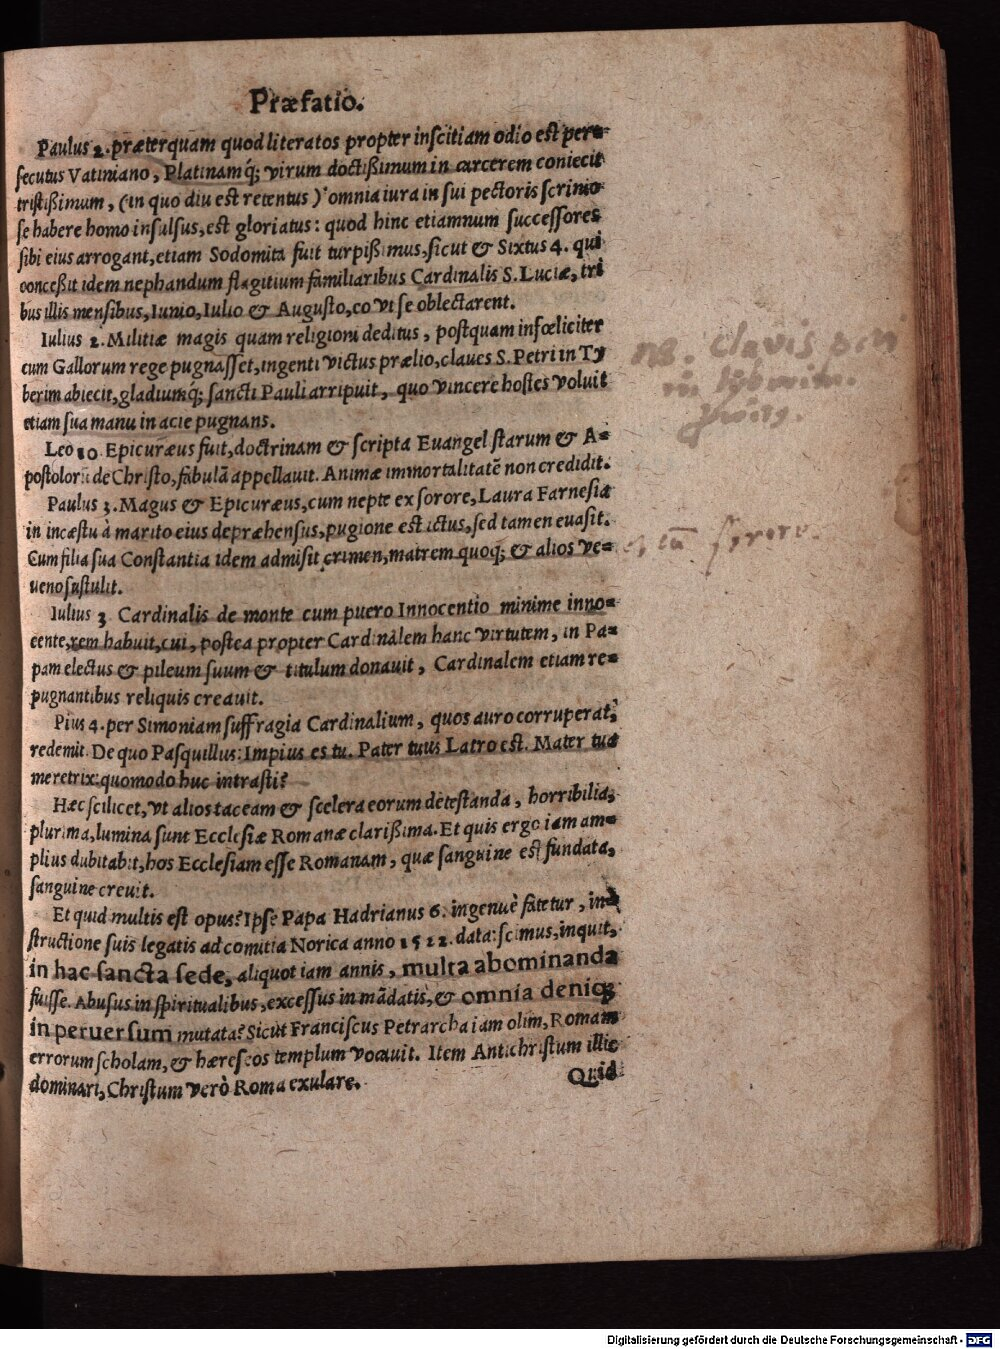 Præfatio.
Paulus 2. præterquam quod literatos propter inscitiam odio est per=
secutus Vatiniano, Platinamq́; virum doctißimum in carcerem coniecit
tristißimum, (in quo diu est retentus) omnia iura in sui pectoris scrinio
se habere homo insulsus, est gloriatus: quod hinc etiamnum successores
sibi eius arrogant, etiam Sodomita fuit turpißimus, sicut & Sixtus 4. qui
conceßit idem nephandum flagitium familiaribus Cardinalis S. Luciæ, tri
bus illis mensibus, Iunio, Iulio & Augusto, eo vt se oblectarent.
Iulius 2. Militiæ magis quam religioni deditus, postquam infœliciter
cum Gallorum rege pugnasset, ingenti victus prælio, claues S. Petri in Ty
berim abiecit, gladiumq́; sancti Pauli arripuit, quo vincere hostes voluit
etiam sua manu in acie pugnans.
Leo 10. Epicuræus fuit, doctrinam & scripta Euangelistarum & A=
postolorũ de Christo, fabulā appellauit. Animæ immortalitatē non credidit.
Paulus 3. Magus & Epicuræus, cum nepte ex sorore, Laura Farnesia
in incæstu à marito eius depræhensus, pugione est ictus, sed tamen euasit.
Cum filia sua Constantia idem admisit crimen, matrem quoq; & alios ve=
ueno sustulit.
Iulius 3 Cardinalis de monte cum puero Innocentio minime inno=
cente, rem habuit, cui, postea propter Cardinalem hanc virtutem, in Pa=
pam electus & pileum suum & titulum donauit, Cardinalem etiam re=
pugnantibus reliquis creauit.
Pius 4. per Simoniam suffragia Cardinalium, quos auro corruperat,
redemit. De quo Pasquillus: Impius es tu. Pater tuus Latro est. Mater tua
meretrix: quomodo huc intrasti?
Hæc scilicet, vt alios taceam & scelera eorum detestanda, horribilia,
plurima, lumina sunt Ecclesiæ Romanæ clarißima. Et quis ergo iam am=
plius dubitabit, hos Ecclesiam esse Romanam, quæ sanguine est fundata,
sanguine creuit.
Et quid multis est opus? Ipse Papa Hadrianus 6. ingenuè fatetur, in=
structione suis legatis ad comitia Norica anno 1522. data: scimus, inquit,
in hac sancta sede, aliquot iam annis, multa abominanda
fuisse. Abusus in spiritualibus, excessus in mādatis, & omnia deniq;
in peruersum mutata? Sicut Franciscus Petrarcha iam olim, Romam
errorum scholam, & hæreseos templum vocauit. Item Antichristum illic
dominari, Christum verò Roma exulare.
Quid
nB. clavis
in tyberim.
Digitalisierung gefördert durch die Deutsche Forschungsgemeinschaft - DFG